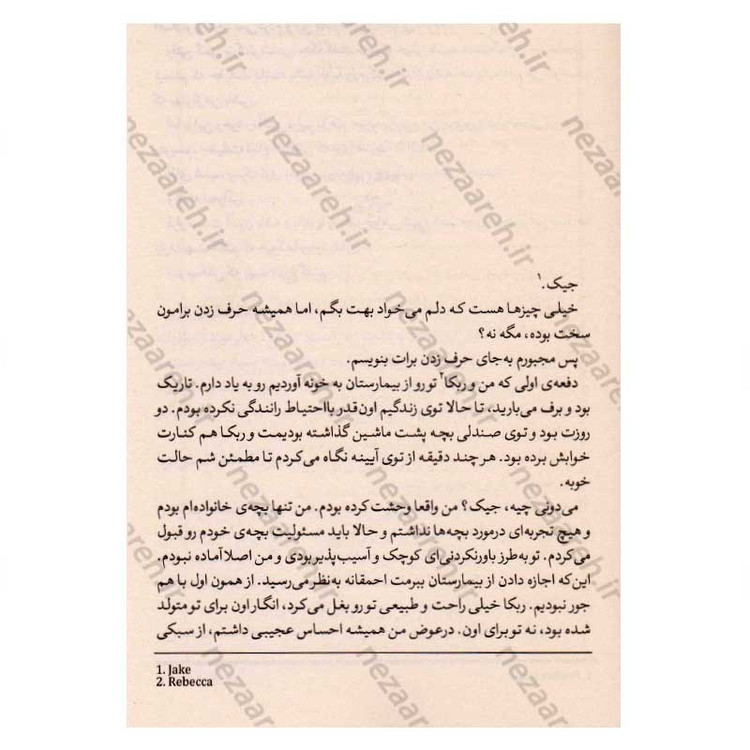 جیک.¹
خیلی چیزها هست که دلم می‌خواد بهت بگم، اما همیشه حرف زدن برامون
سخت بوده، مگه نه؟
پس مجبورم به‌جای حرف زدن برات بنویسم.
دفعه‌ی اولی که من و ربکا² تو رو از بیمارستان به خونه آوردیم رو به یاد دارم. تاریک
بود و برف می‌بارید، تا حالا توی زندگیم اون‌قدر بااحتیاط رانندگی نکرده بودم. دو
روزت بود و توی صندلی بچه پشت ماشین گذاشته بودیمت و ربکا هم کنارت
خوابش برده بود. هر چند دقیقه از توی آیینه نگاه می‌کردم تا مطمئن شم حالت
خوبه.
می‌دونی چیه، جیک؟ من واقعا وحشت کرده بودم. من تنها بچه‌ی خانواده‌ام بودم
و هیچ تجربه‌ای درمورد بچه‌ها نداشتم و حالا باید مسئولیت بچه‌ی خودم رو قبول
می‌کردم. تو به‌طرز باورنکردنی‌ای کوچک و آسیب‌پذیر بودی و من اصلا آماده نبودم.
این‌که اجازه دادن از بیمارستان ببرمت احمقانه به‌نظر می‌رسید. از همون اول با هم
جور نبودیم. ربکا خیلی راحت و طبیعی تو رو بغل می‌کرد، انگار اون برای تو متولد
شده بود، نه تو برای اون. درعوض من همیشه احساس عجیبی داشتم، از سبکی
1. Jake
2. Rebecca
nezaareh.ir